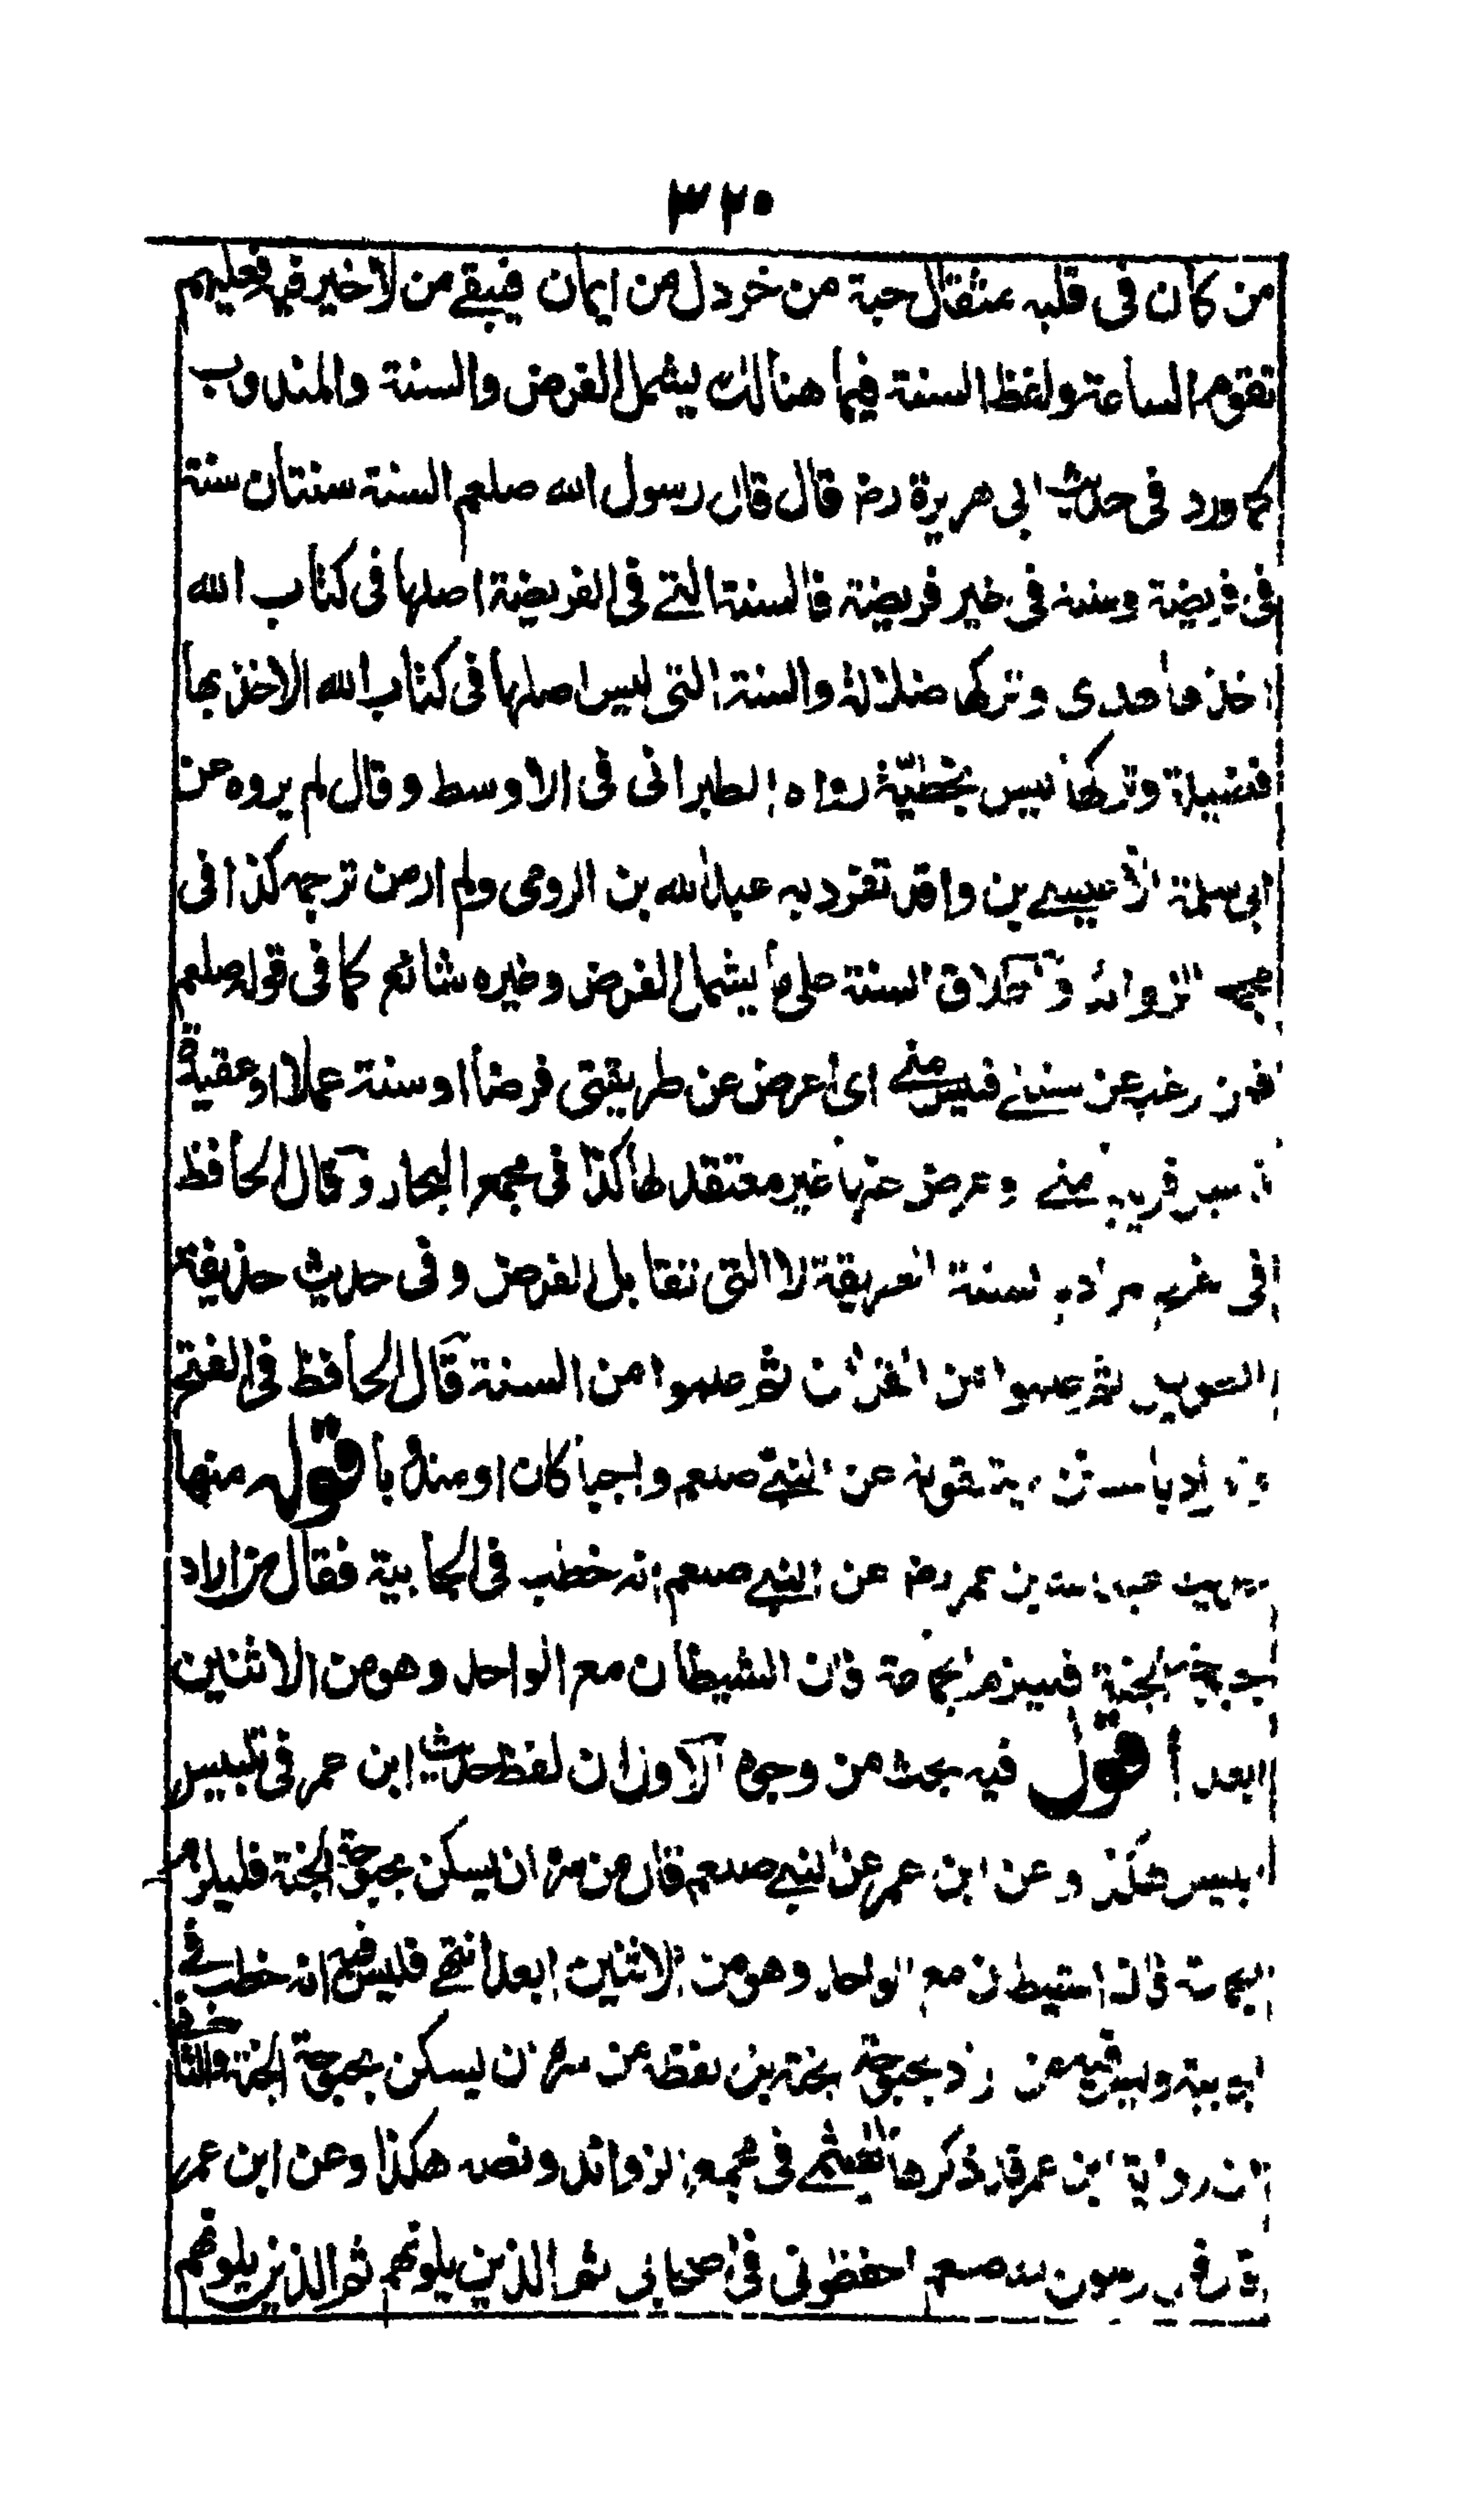 ٣٢٠
من كان فى قلبه مثقال حبة من خردل من ايمان فيبقے من لا خير فيهم فعليهم
تقوم الساعة ولفظ السنة فيما هنالك يشمل الفرض والسنة والمندوب
كما ورد فى حديث ابى هريرة رضـ قال قال رسول الله صلعم السنة سنتان سنة
فى فريضة وسنة فى غير فريضة فالسنة التے فى الفريضة اصلها فى كتاب الله
اخذها هدى وتركها ضلالة والسنة التى ليس اصلها فى كتاب الله الاخذ بها
فضيلة وتركها ليس بخطيئة رواه الطبرانى فى الاوسط وقال لم يروه عن
ابى سلمة الا عيسے بن واقد تفرد به عبد الله بن الرومى ولم ار من ترجمه كذا فى
مجمع الزوائد واطلاق السنة على ما يشمل الفرض وغيره شائع كما فى قوله صلعم
فمن رغب عن سنتے فليس منے اى اعرض عن طريقتى فرضا او سنة عملا او عقيدة
فليس قريبا منے وعرض عنها غير معتقد لها كذا فى مجمع البحار وقال الحافظ
فى شرحه مراده السنة الطريقة لا التى تقابل الفرض وفى حديث حذيفة
الطويل ثم علموا من القرآن ثم علموا من السنة قال الحافظ فى الفتح
والمراد بالسنن ما يتلقونه عن النبے صلعم واجبا كان او مندوبا قوله منها
حديث عبد الله بن عمر رضـ عن النبے صلعم انه خطب فى الجابية فقال من اراد
بحبوحة الجنة فليلزم الجماعة فان الشيطان مع الواحد وهو من الاثنين
ابعد اقول فيه بحث من وجوه الاول ان لفظ حديث ابن عمر فى تلبيس
ابليس هكذا وعن ابن عمر عن النبے صلعم قال من سره ان يسكن بحبوحة الجنة فليلزم
الجماعة فان الشيطان مع الواحد وهو من الاثنين ابعد انتهے فليس فيه انه خطب فے
الجابية وليس فيه من اراد بحبوحة الجنة بل لفظه من سره ان يسكن بحبوحة الجنة والثانى
ان رواية ابن عمر قد ذكرها الهيثمے فى مجمع الزوائد ونصه هكذا وعن ابن عمر
قال قال رسول الله صلعم احفظونى فى اصحابى ثم الذين يلونهم ثم الذين يلونهم